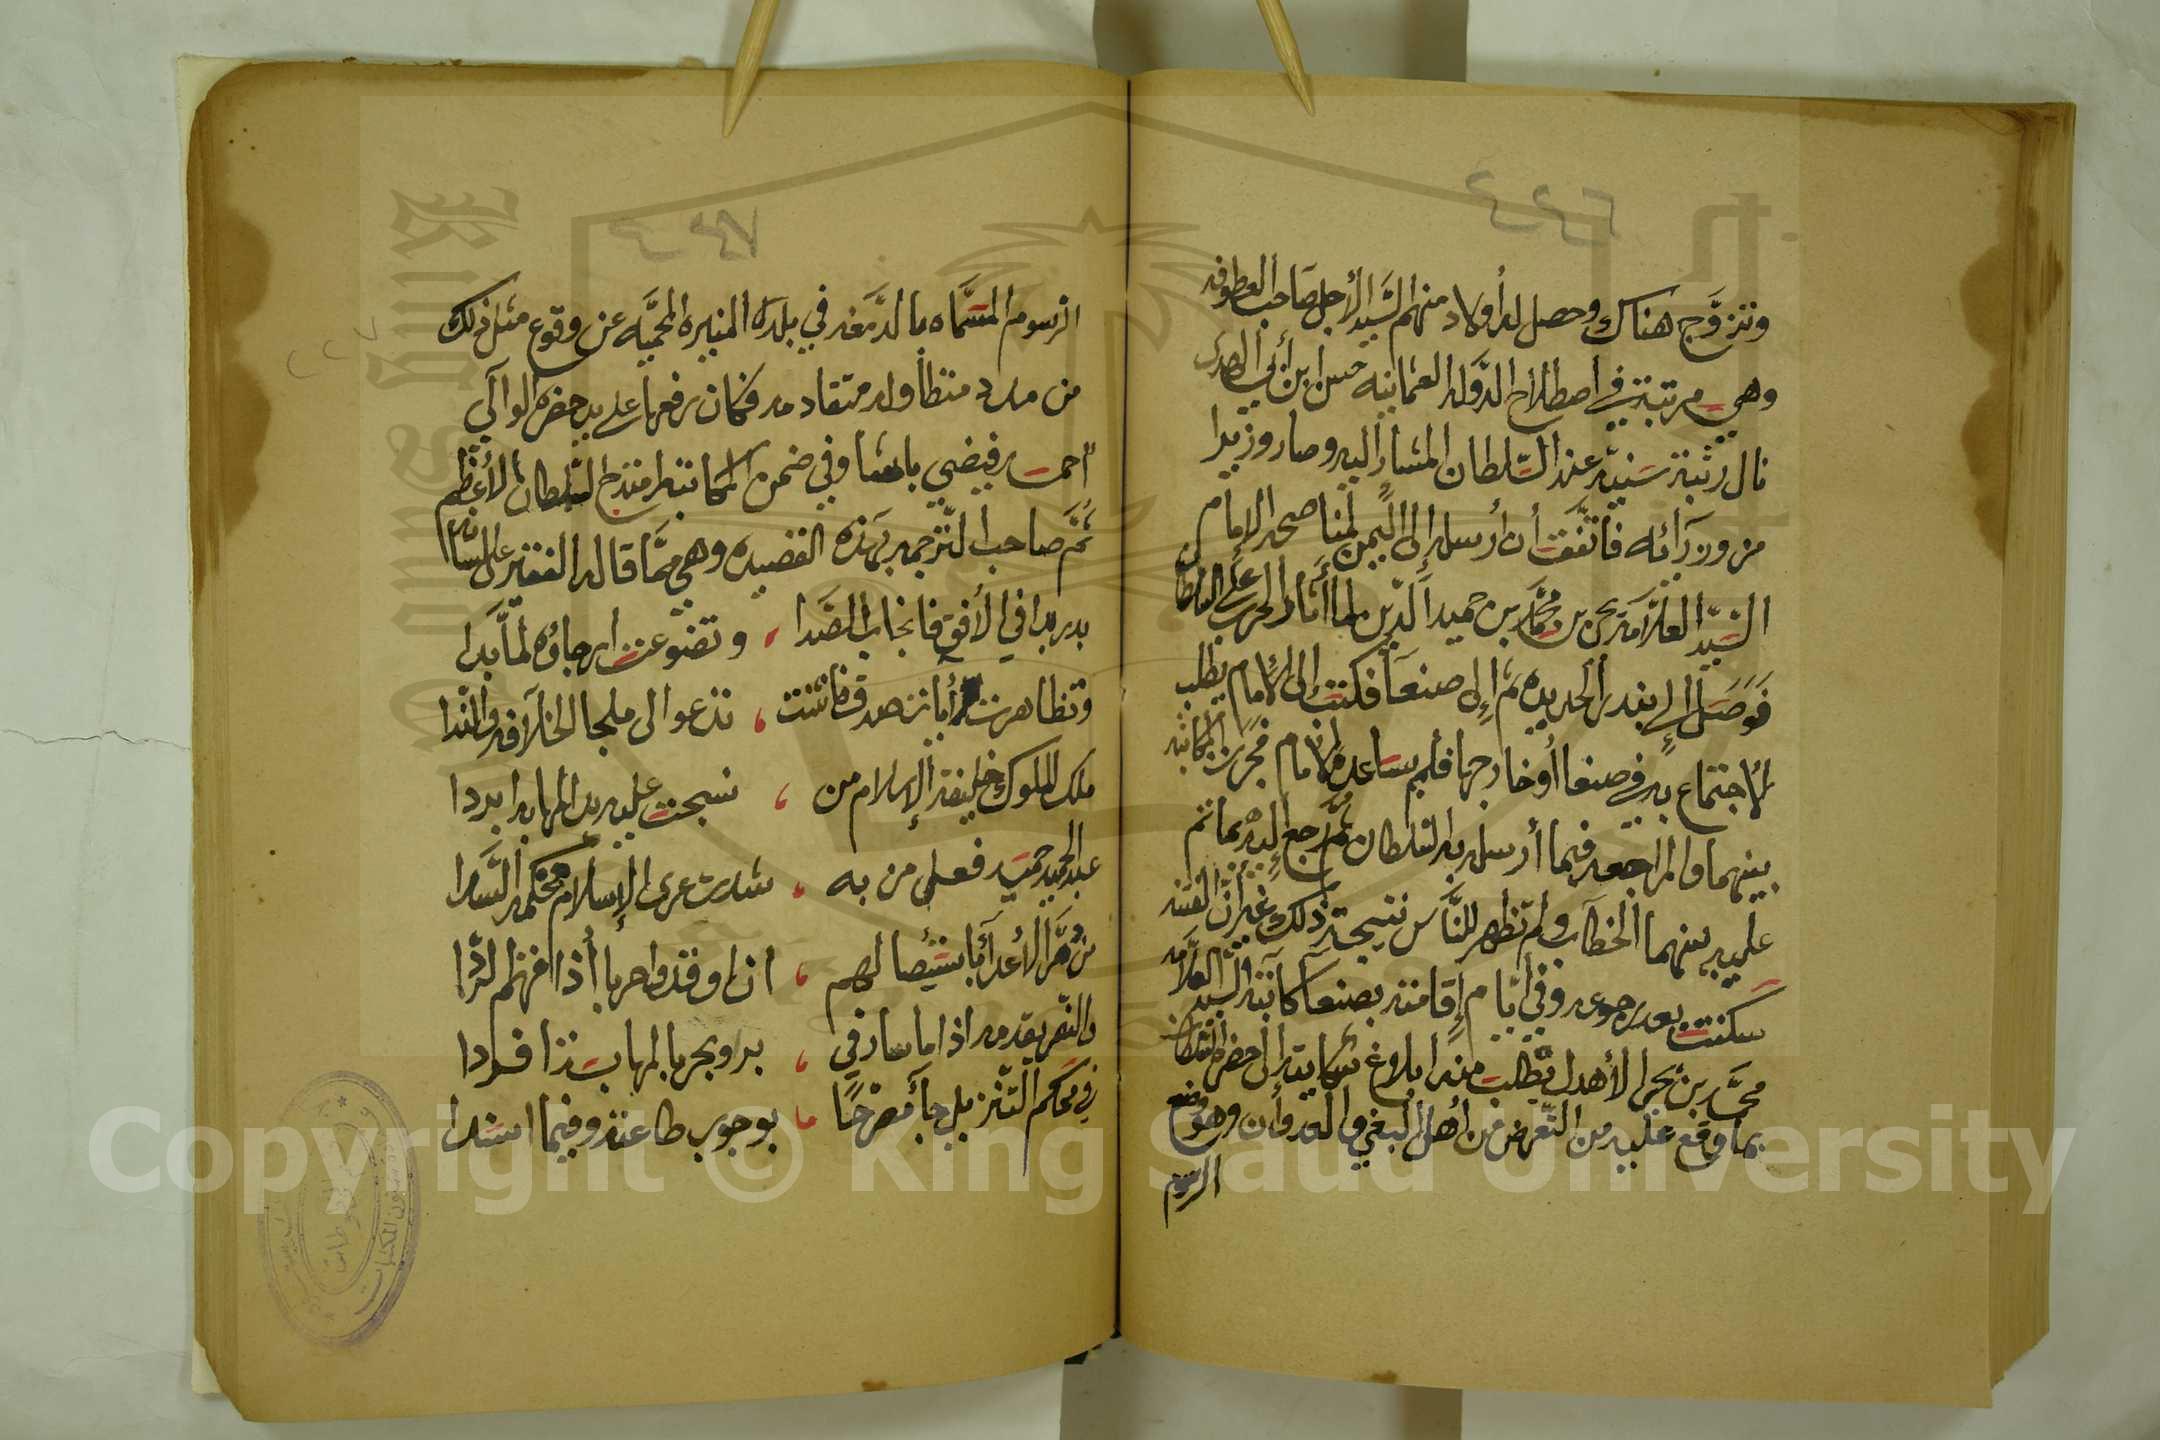 وتزوَّج هناك وحصل له أولاد منهم السَّيد الأجل صاحب العطوفه
وهي مرتبة في اصطلاح الدَّوله العثمانيه حسن ابن أبي الهدى
نال رتبة سَنيّه عند السّلطان المشار إليه وصار وزيرا
من وزرائه فاتَّفق أن أرسله إلى اليمن لمناصحة الإمام
السَّيد العلَّامة يحيى بن محمَّد بن حميد الدّين لما أثار الحرب على السلطان
فَوَصَل إلى بندر الحديده ثم إلى صنعآ فكتب إلى الإمام يطلب
الاجتماع به في صنعا أو خارجها فلم يساعده الإمام فجرت المكاتبه
بينهما والمراجعه فيما أرسله به السلطان ثمَّ رجع إليه بما تم
عليه بينهما الخطاب ولم تظهر للنَّاس نتيجة ذلك غير أن الفتنه
سكنت بعد رجوعه وفي أيّام إقامته بصنعآ كاتبه السّيد العلاَّمه
محمَّد بن يحيى الأهدل يطلب منه ابلاغ شكايته إلى حضرة السُّلطان
بما وقع عليه من التّعرض من أهل البغي والعدوان وهو وضع
الرسوم
الرسوم المسَّماه بالدَّمغه في بلده المنيره المحميَّه عن وقوع مثل ذلك
من مدد متطأوله متقادمه فكان رفعها على يد حضرة الوالي
احمد فيضي باشا وفي ضمن المكاتبه امتدح السلطان الأعظم
ثُمَّ صاحب التّرجمه بهذه القصيده وهي ممَّا قاله الفقير على لسانه
بدر بدا في الأفق فانجاب الصَدا ، وتضوعت ارجاؤه لمَّا بَدا
وتظاهرت أيات صدق فانثنت ، تدعوا الى ملجا الخلآفة والندا
ملك الملوك خليفة الإسلام من ، نسجت عليه يد المهابة ابردا
عبد الحميد حميد فعلى من به ، شدت عرى الإسلام محكمة السَّدا
ان اوقدوا حربا
والنصر يقدمه اذا ما سار في ، برا وبحر بالمهابة
في محكم التّنزيل جآ مصَرّحًا ، بوجوب طاعته وفيما اسندا